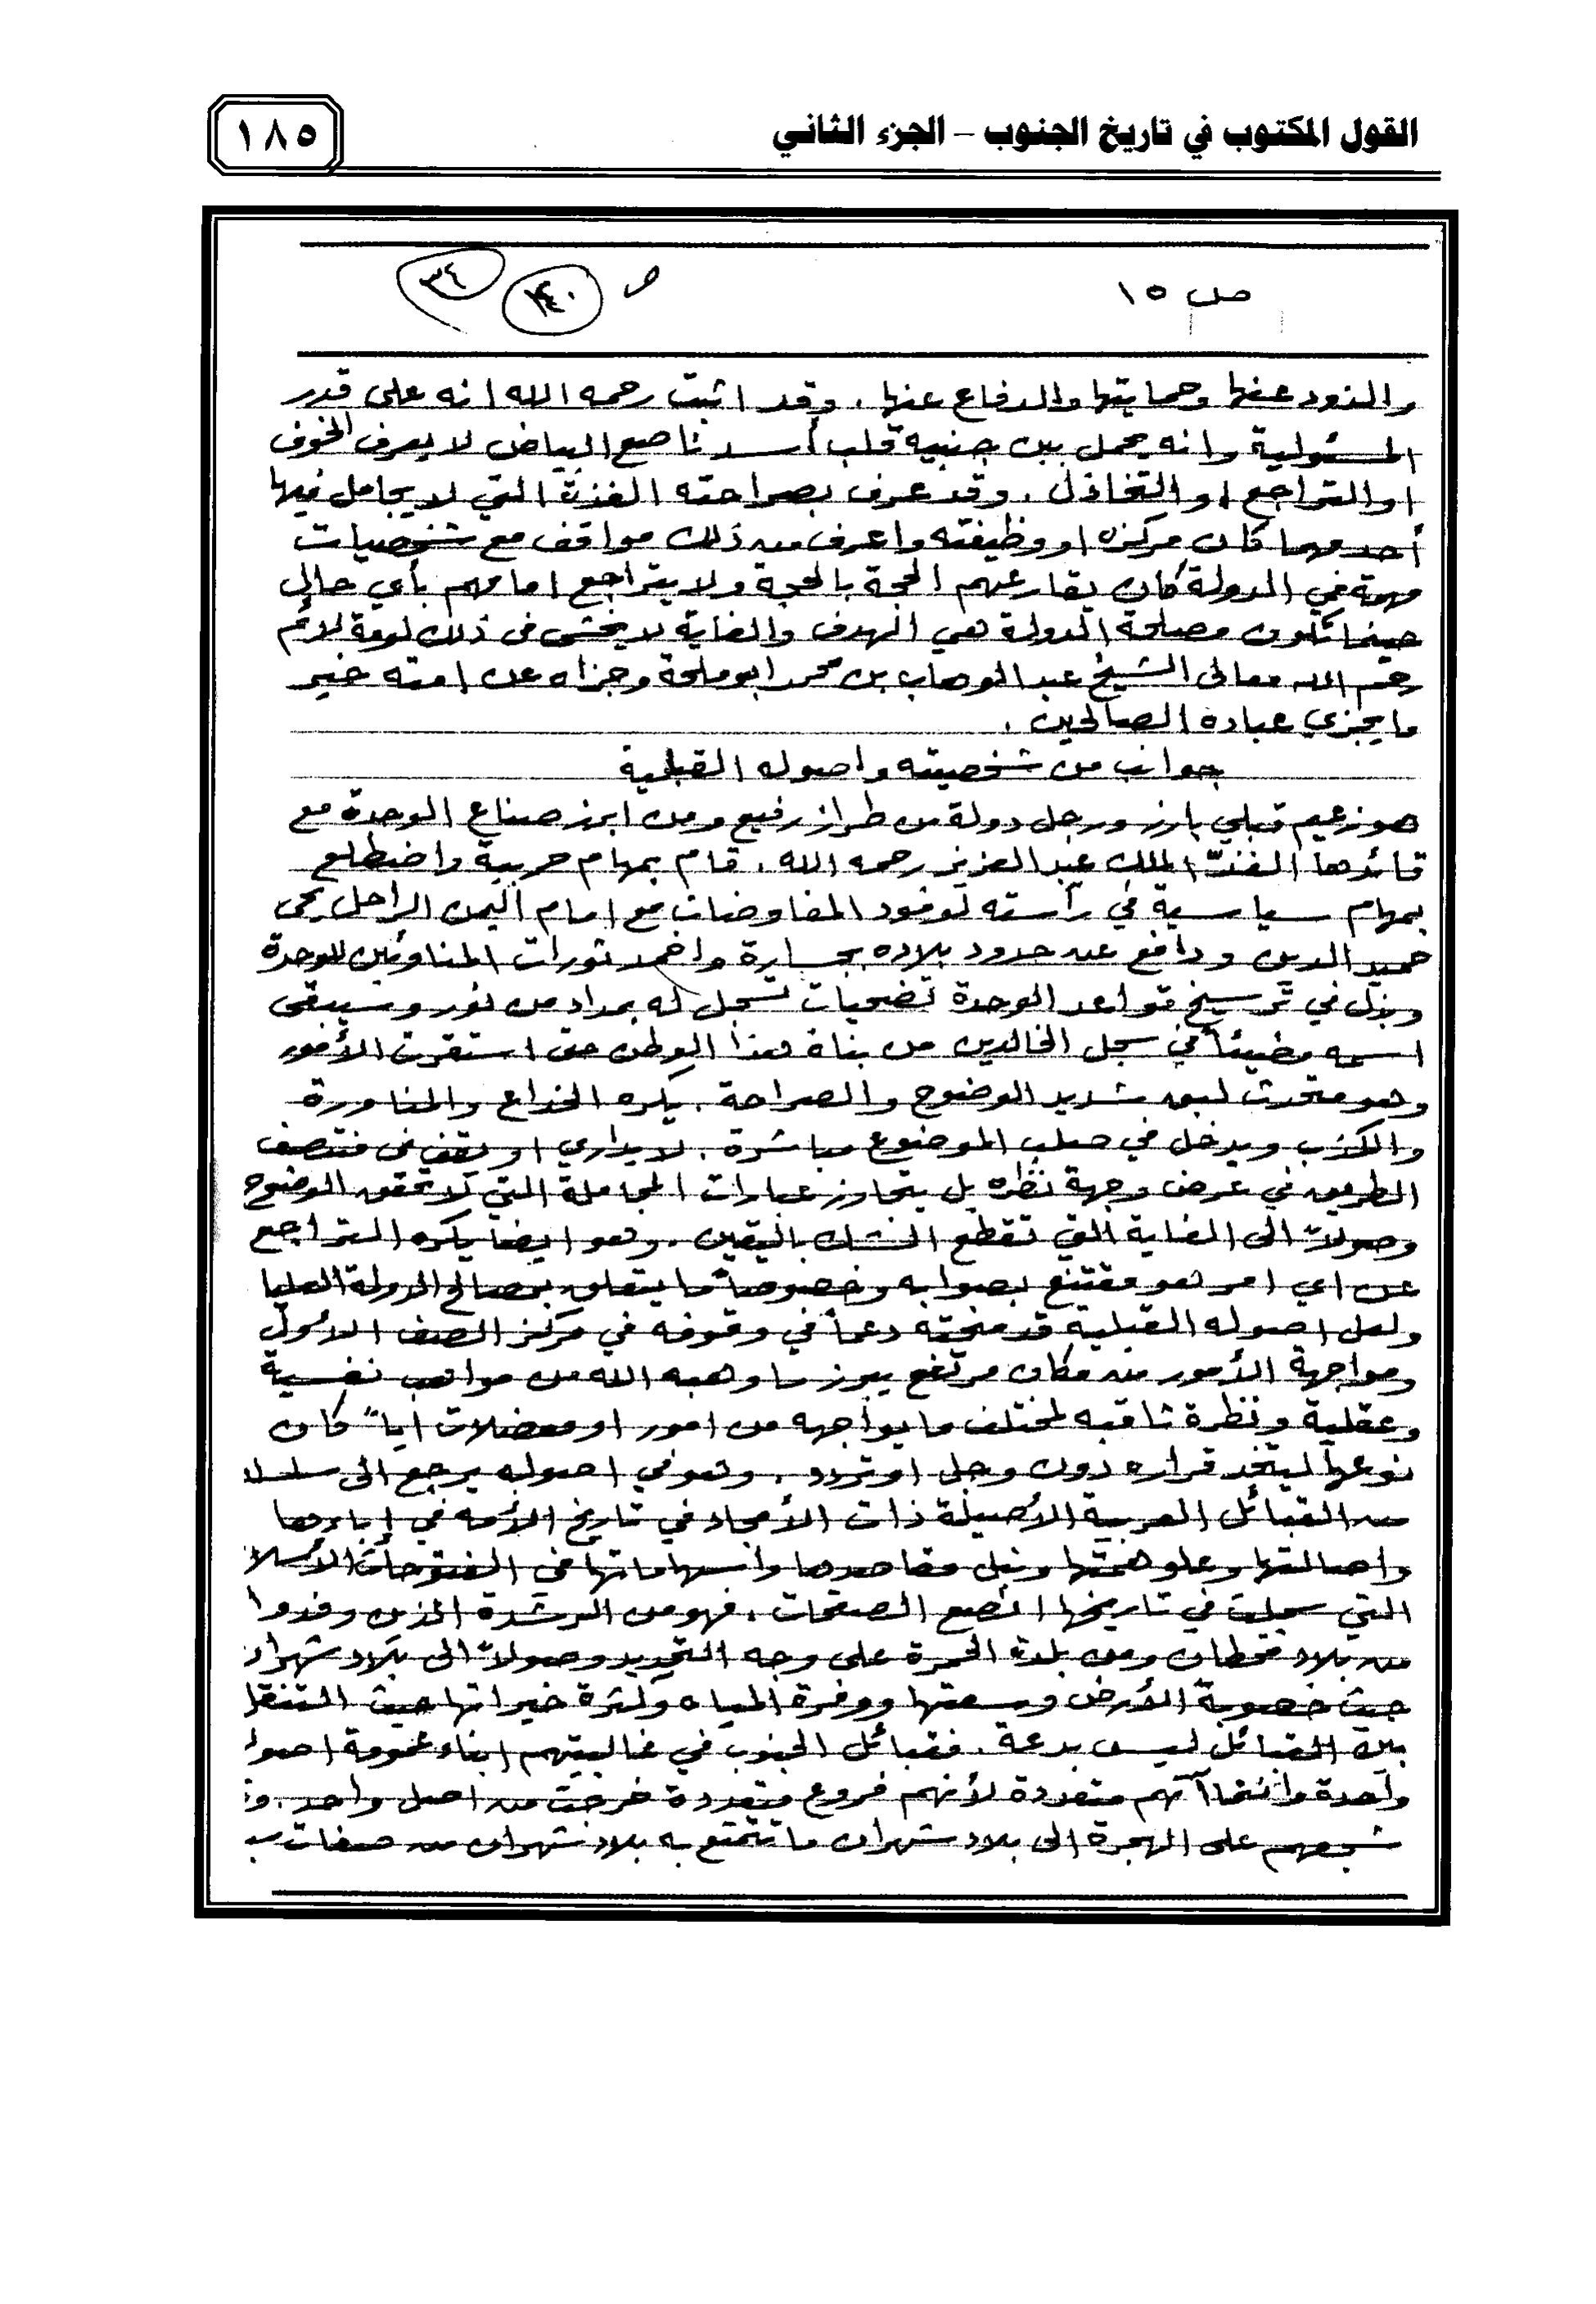 القول المكتوب في تاريخ الجنوب – الجزء الثاني
١٨٥
ص ١٥
ص ١٤٠ ٣٤
والذود عنها وحمايتها والدفاع عنها . وقد اثبت رحمه الله انه على قدر
المسئولية وانه يحمل بين جنبيه قلب أسد ناصع البياض لا يعرف الخوف
او التراجع او التخاذل . وقد عرف بصراحته الفذة التي لا يجامل فيها
أحد مهما كان مركزه او وظيفته واعرف من ذلك مواقف مع شخصيات
مهمة في الدولة كان يقارعهم الحجة بالحجة ولا يتراجع امامهم بأي حال
حينما تكون مصلحة الدولة هي الهدف والغاية لا يخشى في ذلك لومة لائم
رحم الله معالي الشيخ عبد الوهاب بن محمد ابو ملحة وجزاه عن امته خير
ما يجزي عباده الصالحين .
جوانب من شخصيته واصوله القبلية
هو زعيم قبلي بارز ورجل دولة من طراز رفيع ومن ابرز صناع الوحدة مع
قائدها الفذّ الملك عبد العزيز رحمه الله . قام بمهام حربية واضطلع
بمهام سياسية في رأسته لوفود المفاوضات مع امام اليمن الراحل يحى
حميد الدين ودافع عن حدود بلاده بجسارة واخمد ثورات المناوئين للوحدة
وبذل في ترسيخ قواعد الوحدة تضحيات تسجل له بمداد من نور وسيبقى
اسمه مضيئاً في سجل الخالدين من بناة هذا الوطن حتى استقرت الأمور
وهو متحدث لبق شديد الوضوح والصراحة . يكره الخداع والمناورة
والكذب ويدخل في صلب الموضوع مباشرة . لا يداري او يقف في منتصف
الطريق في عرض وجهة نظره بل يتجاوز عبارات المجاملة التي لا تحقق الوضوح
وصولاً الى الغاية التي تقطع الشك باليقين . وهو ايضا يكره التراجع
عن اي امر هو مقتنع بصوابه وخصوصاً ما يتعلق بمصالح الدولة العليا
ولعل اصوله القبلية قد منحته دعماً في وقوفه في مركز الصف الأول
ومواجهة الأمور من مكان مرتفع يبرز ما وهبه الله من مواهب نفسية
وعقلية ونظرة ثاقبه لمختلف ما يواجهه من امور او معضلات اياً كان
نوعها ليتخذ قراره دون وجل او تردد . وهو في اصوله يرجع الى سلسلا
من القبائل العربية الأصيلة ذات الأمجاد في تاريخ الأمه في إباءها
واصالتها وعلو همتها ونبل مقاصدها وأسهاماتها في الفتوحات الأسلا
التي سجلت في تاريخها انصع الصفحات . فهو من الرشدة الذين وفدوا
من بلاد قحطان ومن بلدة الحمرة على وجه التحديد وصولاً الى بلاد شهران
حيث خصوبة الأرض وسعتها ووفرة المياه وكثرة خيراتها حيث التنقل
بين القبائل ليس بدعة . فقبائل الجنوب في غالبيتهم ابناء عمومة اصوا
واحدة وانتماآتهم متعددة لأنهم فروع متعددة خرجت من اصل واحد . و
شجعهم على الهجرة الى بلاد شهران ما تتمتع به بلاد شهران من صفات